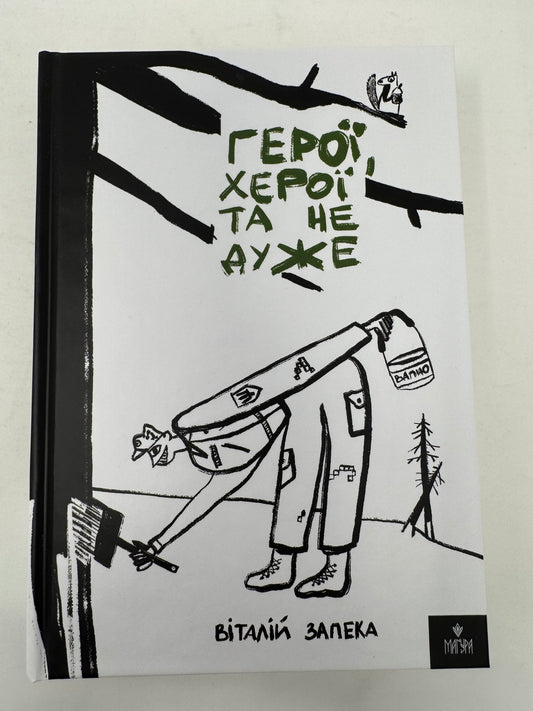 ГЕРОЇ,
ХЕРОЇ
ТА НЕ
ДУЖЕ
ВАПНО
ВІТАЛІЙ ЗАПЕКА
МАҐУРА